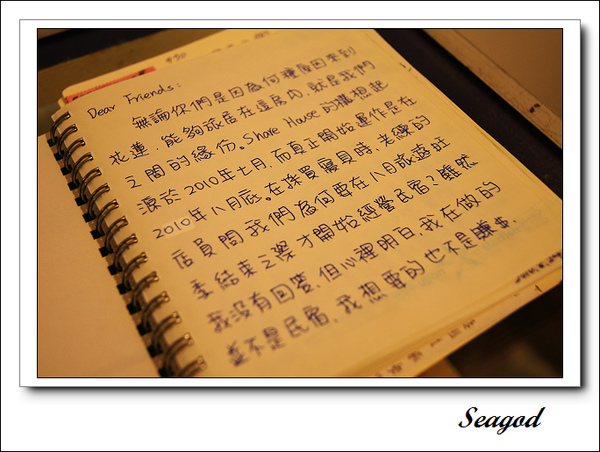 Dear Friends:
無論你們是因為何種原因來到
花蓮,能夠旅居在這房內,就是我們
之間的緣份。Share House的構想起
源於2010年七月,而真正開始運作是在
2010年八月底。在採買寢具時,老練的
店員問我們為何要在八月旅遊旺
季結束之際才開始經營民宿?雖然
我沒有回答,但心裡明白,我在做的
並不是民宿,我想要的也不是賺事.
Seagod